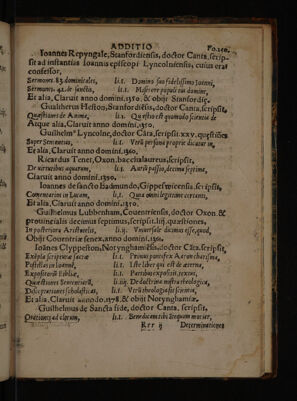 ADDITIO Fo.240.
Ioannes Repyngale, Stanfordiensis, doctor Canta. scrip-
sit ad instantiam Ioannis episcopi Lyncolniensis, cuius erat
confessor,
Sermones 83. dominicales, li.1. Domino suo fidelissimo Ioanni,
Sermones 42. de sanctis, li.1. Miserere populi tui domine,
Et alia, Claruit anno domini. & obijt Stanfordiæ.
Gualtherus Heston, Stanfordiēsis, doctor Canta. scripsit,
Quæstiones de Anima, li.1. Quæstio est quomodo scientia de
Atque alia, Claruit anno domini,
Guilhelmus Lyncolne, doctor Cāta. scripsit .xxv. quæstiōes
Super Sententias, li.1. Verū persona proprie dicatur in,
Et alia, Claruit anno domini, 1360.
Ricardus Tenet, Oxon. bacchalaureus, scripsit,
De uirtutibus aquarum, li.1.
Claruit anno domini .1350.
Ioannes de sancto Eadmundo, Gippesuicensis, scripsit,
Comentarios in Lucam, li.1. Quia omni legenti certanti,
Et alia, Claruit anno domini, 1350.
Guilhelmus Lubbenham, Couentriensis, doctor Oxon. &
prouincialis decimus septimus, scripsit, quæstiones,
In posteriora Aristotelis, li.ij. Vniuersale dicimus esse, quod,
Obijt Couentriæ senex, anno domini,
Ioannes Clyppeston, Notynghamiēsis, doctor Cāta. scripsit,
Explā scripturæ sacræ li.1.
li.1. Iste liber qui est de æterna,
Expositorū Bibliæ, li.1.
Quæstiones Sententiarū, li.iiij. De doctrina mistratheologica,
Disceptationes scholasticas, li.1. Verū theologia sit scientia,
Et alia, Claruit anno .1378. & obijt Notynghamiæ.
Guilhelmus de Sancta fide, doctor Canta. scripsit,
Orationes ad clerum, li.1. Benedicam tibi usequam moriar,
Rrr ij Determinationes